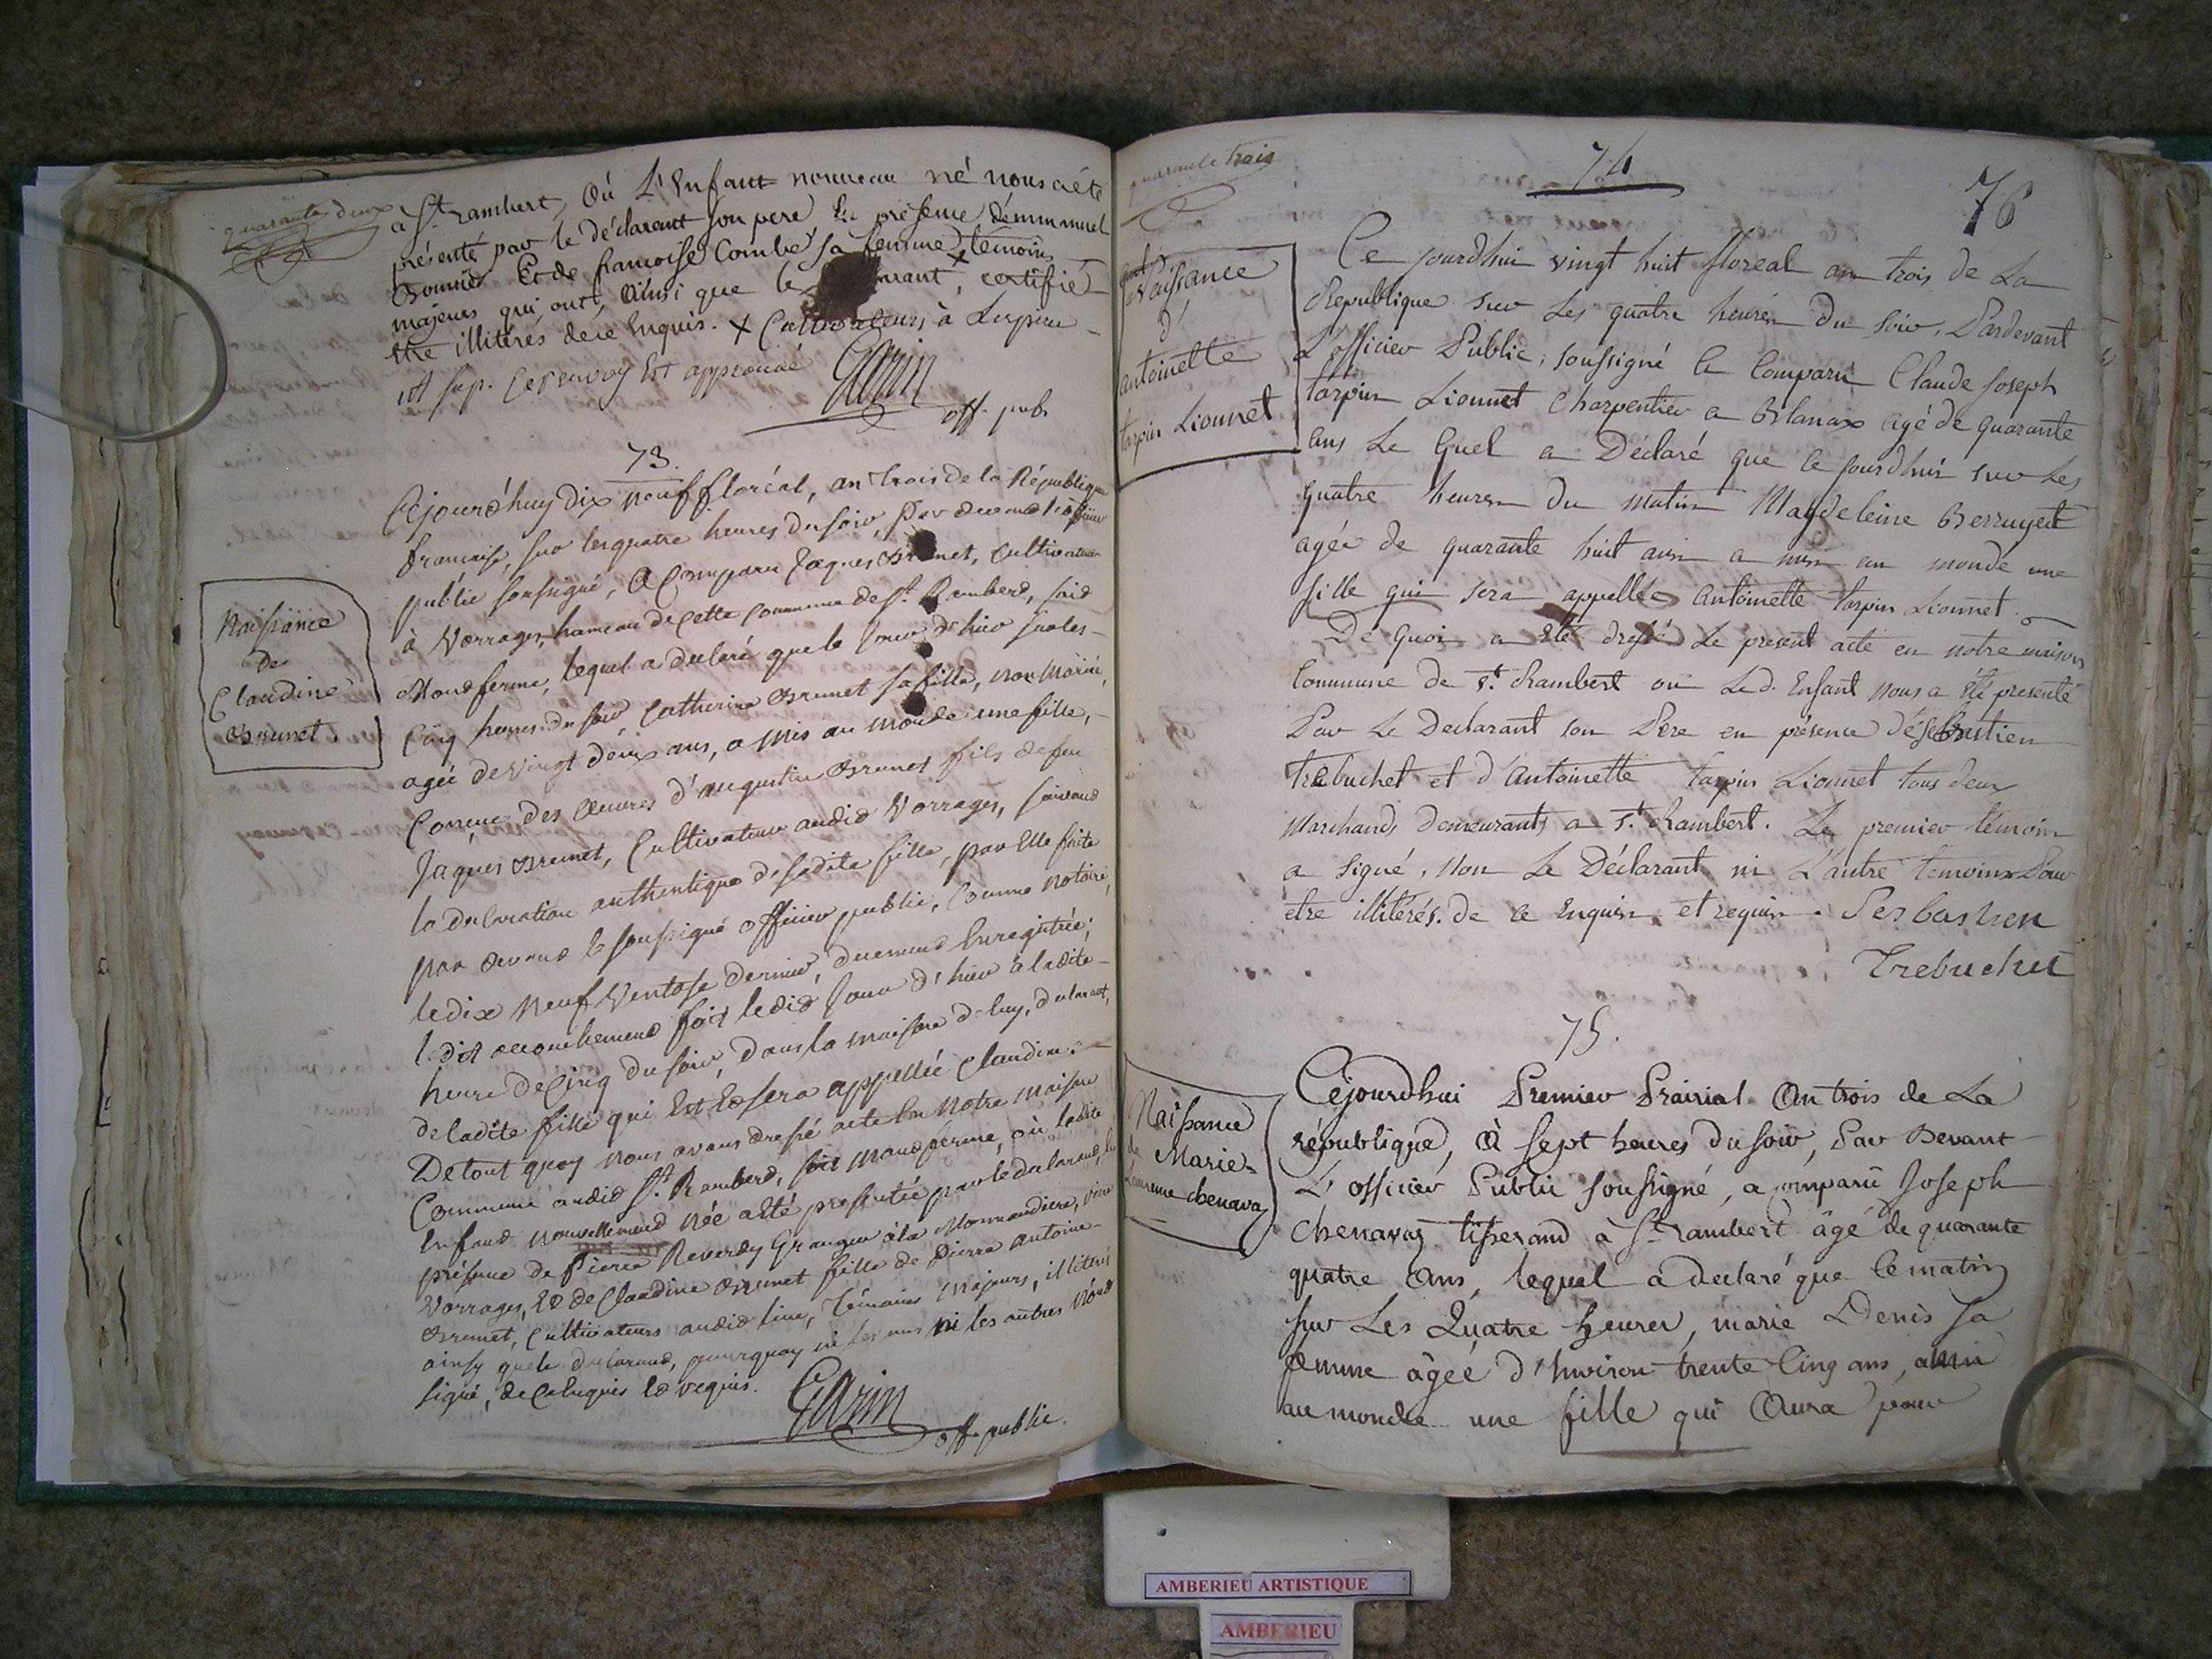 quarante deux
à St rambert, Où L'Enfant nouveau né nous a été
présenté par le déclarant son pere En présence d'emmanuel
Bonnier Et de francoise Combe sa femme x temoins
majeurs qui ont, ainsi que le certifié
etre illitérés de ce Enquis. x Cultivateurs à
approuvé Garin
off. pub.
73.
Cejourd'huy dix neuf floréal, an trois de la République
francaise, sur les quatre heures du soir, par devant l'officier
public soussigné, a Comparu Jaques Brunet, Cultivateur
à Vorrages, hameau de cette commune de St. Ramberd, soid
Mondferme, lequel a declaré que le jour d'hier sur les
Cinq heures du soir Catherine Brunet sa fille, non Mariée,
agée de vingt deux ans, a mis au monde une fille,
Conçue des œuvres d'augustin Brunet fils de feu
Jaques Brunet, Cultivateur audid Vorrages, suivand
la declaration authentique de sadite fille, par Elle faite
par devand le soussigné officier public, Comme notoire,
le dix neuf Ventose dernier, duemend Enregistrée;
l'dit accouchemend fait ledid jour d'hier à ladite
heure de Cinq du soir, dans la maison de luy, declarant,
de ladite fille qui Est Ed sera appellée Claudine.
De tout quoy nous avons dressé acte En notre maison
Commune audid St Ramberd, soit mondferme, où ladite
Enfand nouvellemend née a été presentée par le declarand, En
présence de Pierre Reverdy Granger à la
Vorrages, Ed de Claudine Brunet fille de Pierre antoine
Brunet, Cultivateurs audid lieu, Témoins Majeurs, illiterés
ainsy que le declarand, pourquoy ni les uns ni les autres n'ond
signé, de ce Enquis Ed requis. Garin
off. public.
Naissance
de
Claudine
Brunet.
quarante trois
74
76
Naissance
d'
antoinette
tarpin Lionnet
Ce jourdhui vingt huit floreal an trois de La
Republique sur Les quatre heures Du soir, Pardevant
L'officier Public, soussigné a Comparu Claude Joseph
tarpin Lionnet Charpentier a Blanax agé de quarante
ans Le quel a Déclaré que ce jourdhui sur Les
quatre heures du matin Magdeleine Berruyet
agée de quarante huit ans a mis au monde une
fille qui sera appellée antoinette tarpin Lionnet.
De quoi a Eté dressé Le present acte en notre maison
Commune de St. Rambert ou Led. Enfant nous a Eté presenté
Par Le Declarant son Pere en présence de sebastien
trebuchet et d'Antoinette tarpin Lionnet tous deux
Marchands Demeurants a St. Rambert. Le premier témoin
a signé, non Le Déclarant ni L'autre temoins Pour
etre illitérés. de ce Enquis et requis. Sesbastien
Trebuchet
75.
Naissance
de Marie
Laurence chenavaz
Céjourdhui Premier Prairial an trois de La
république, à sept heures du soir, Par Devant
L'officier Public soussigné, a comparu Joseph
Chenavaz tisserand à St rambert âgé de quarante
quatre ans, lequel a declaré que ce matin
sur Les Quatre heures, marie Denis sa
femme âgée d'Environ trente Cinq ans, a mis
au monde une fille qui aura pour
AMBERIEU ARTISTIQUE
AMBERIEU